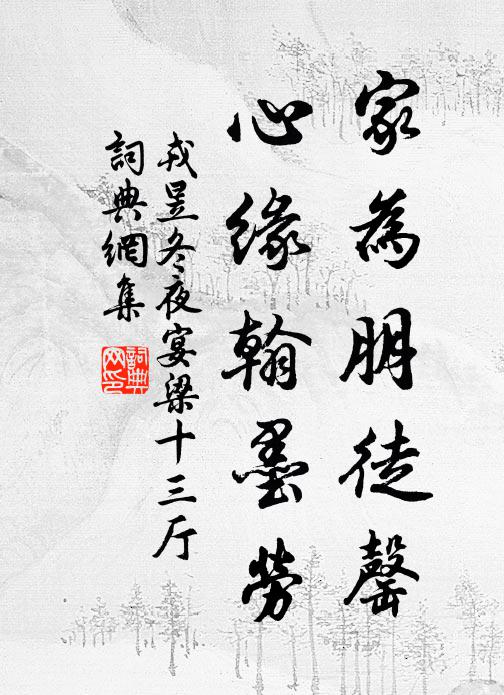 家為朋徒罄
心緣翰墨勞
戎昱冬夜宴梁十三厅
詞典網集
詞典网印